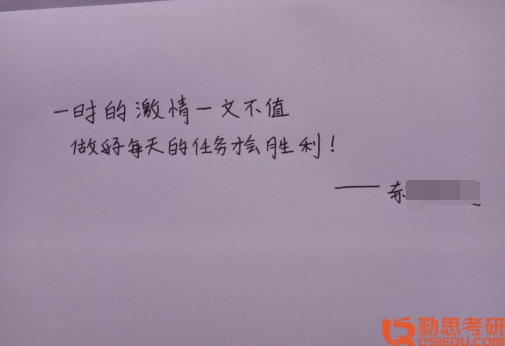 一时的激情一文不值
做好每天的任务才会胜利!
——
勤思考研
QSIEDU.COM